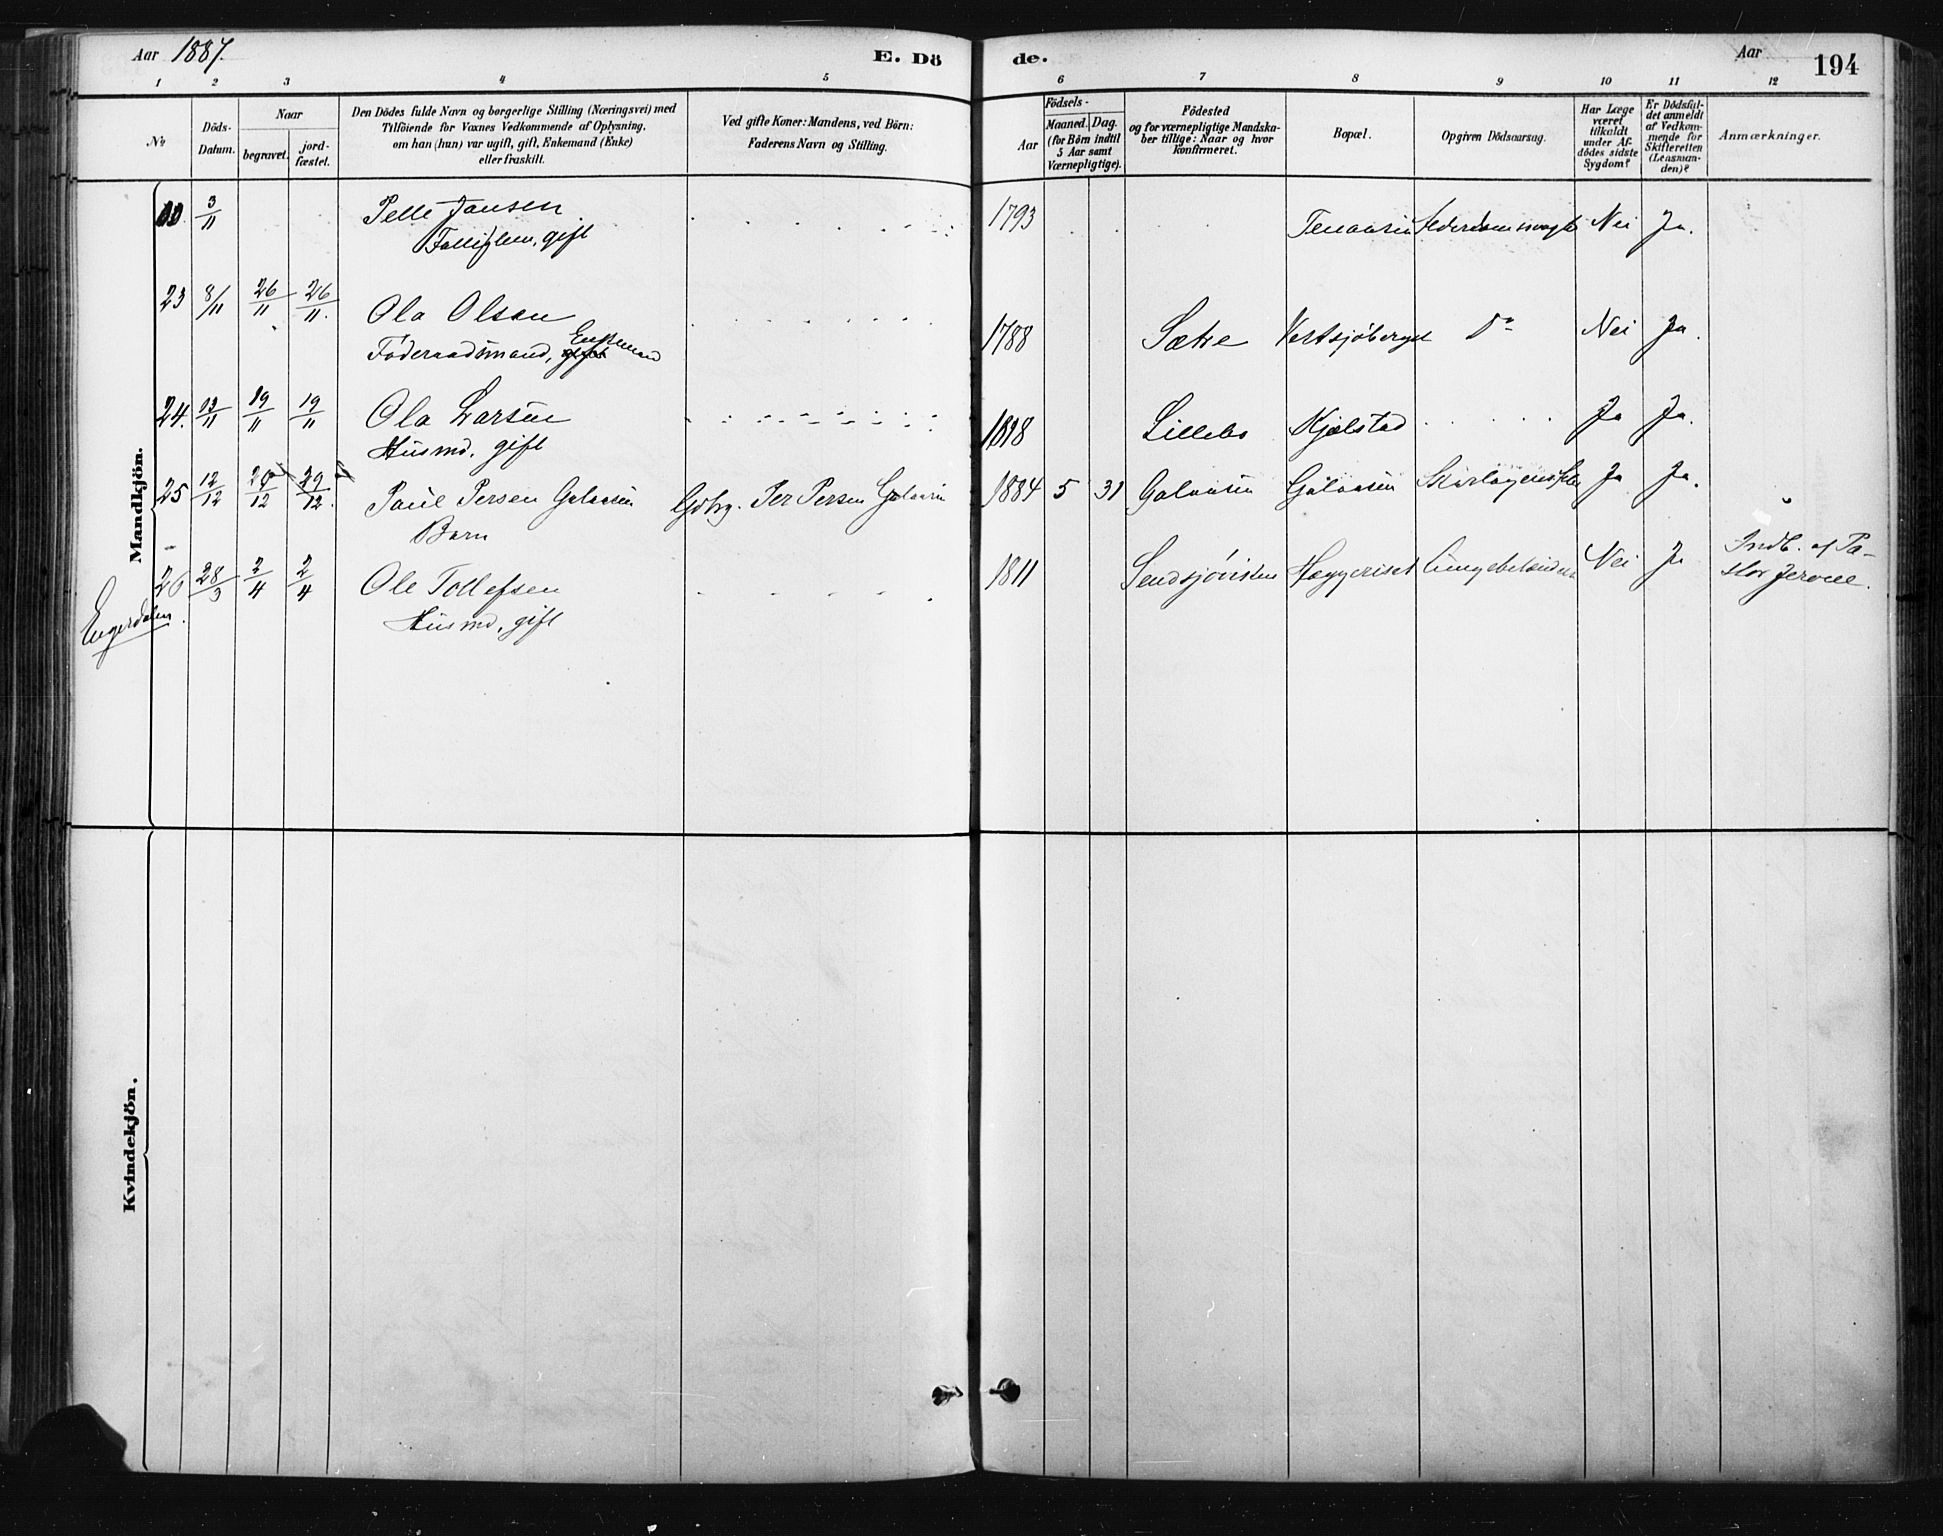 Aar 1887.
E. Dö
de.
Aar
194
1 2 3 4 5 6 7 8 9 10 11 12
No
Döds-
Datum.
Naar
begravet.
jord-
fæstet.
Den Dödes fulde Navn og borgerlige Stilling (Næringsvei) med
Tilföiende for Voxnes Vedkommende af Oplysning,
om han (hun) var ugift, gift, Enkemand (Enke)
eller fraskilt.
Ved gifte Koner: Mandens, ved Börn:
Faderens Navn og Stilling.
Födsels-
Aar
Maaned.
Dag.
(for Börn indtil
5 Aar samt
Værnepligtige).
Födested
og for værnepligtige Mandska-
ber tillige: Naar og hvor
konfirmeret.
Bopæl.
Opgiven Dödsaarsag.
Har Læge
været
tilkaldt
under Af-
dödes sidste
Sygdom?
Er Dödsfal-
det anmeldt
af Vedkom-
mende for
Skifteretten
(Lensman-
den)?
Anmærkninger.
Mandkjön.
3/11 Pelle Jansen 1793 Nei Ja.
gift
23 8/11 26/11 26/11. Ola Olsen 1788 Sætre Do Nei Ja.
Föderaadsmand, Enkemand
24. 13/11 19/11 19/11 Ola Larsen Lillebo Kjølstad Ja Ja.
Husmd. gift
25 12/12 29/12 29/12. Paul Persen Galaasen Gdbr. Per Persen Galaasen 1884 5 31 Galaasen Galaasen Ja Ja.
Barn
26 28/3 2/4 2/4 Ole Tollefsen 1811 Hæggeriset Nei Ja Indb. af Pa-
stor
Engerdalen.
Husmd, gift
Kvindekjön.